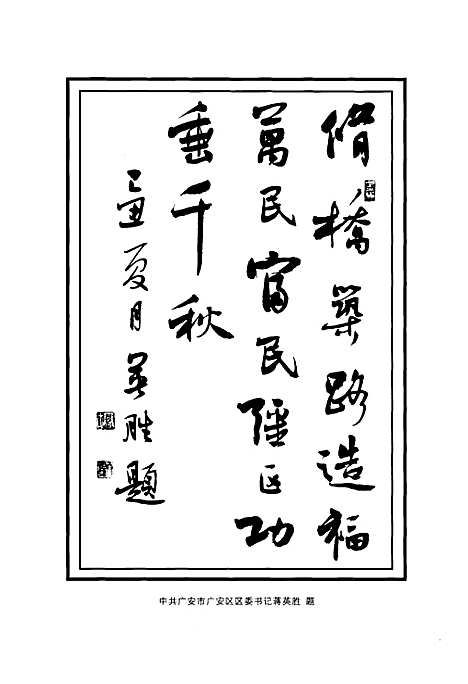 脩橋築路造福
萬民富民疆区功
垂千秋
己丑夏月英胜題
中共广安市广安区区委书记蒋英胜 题